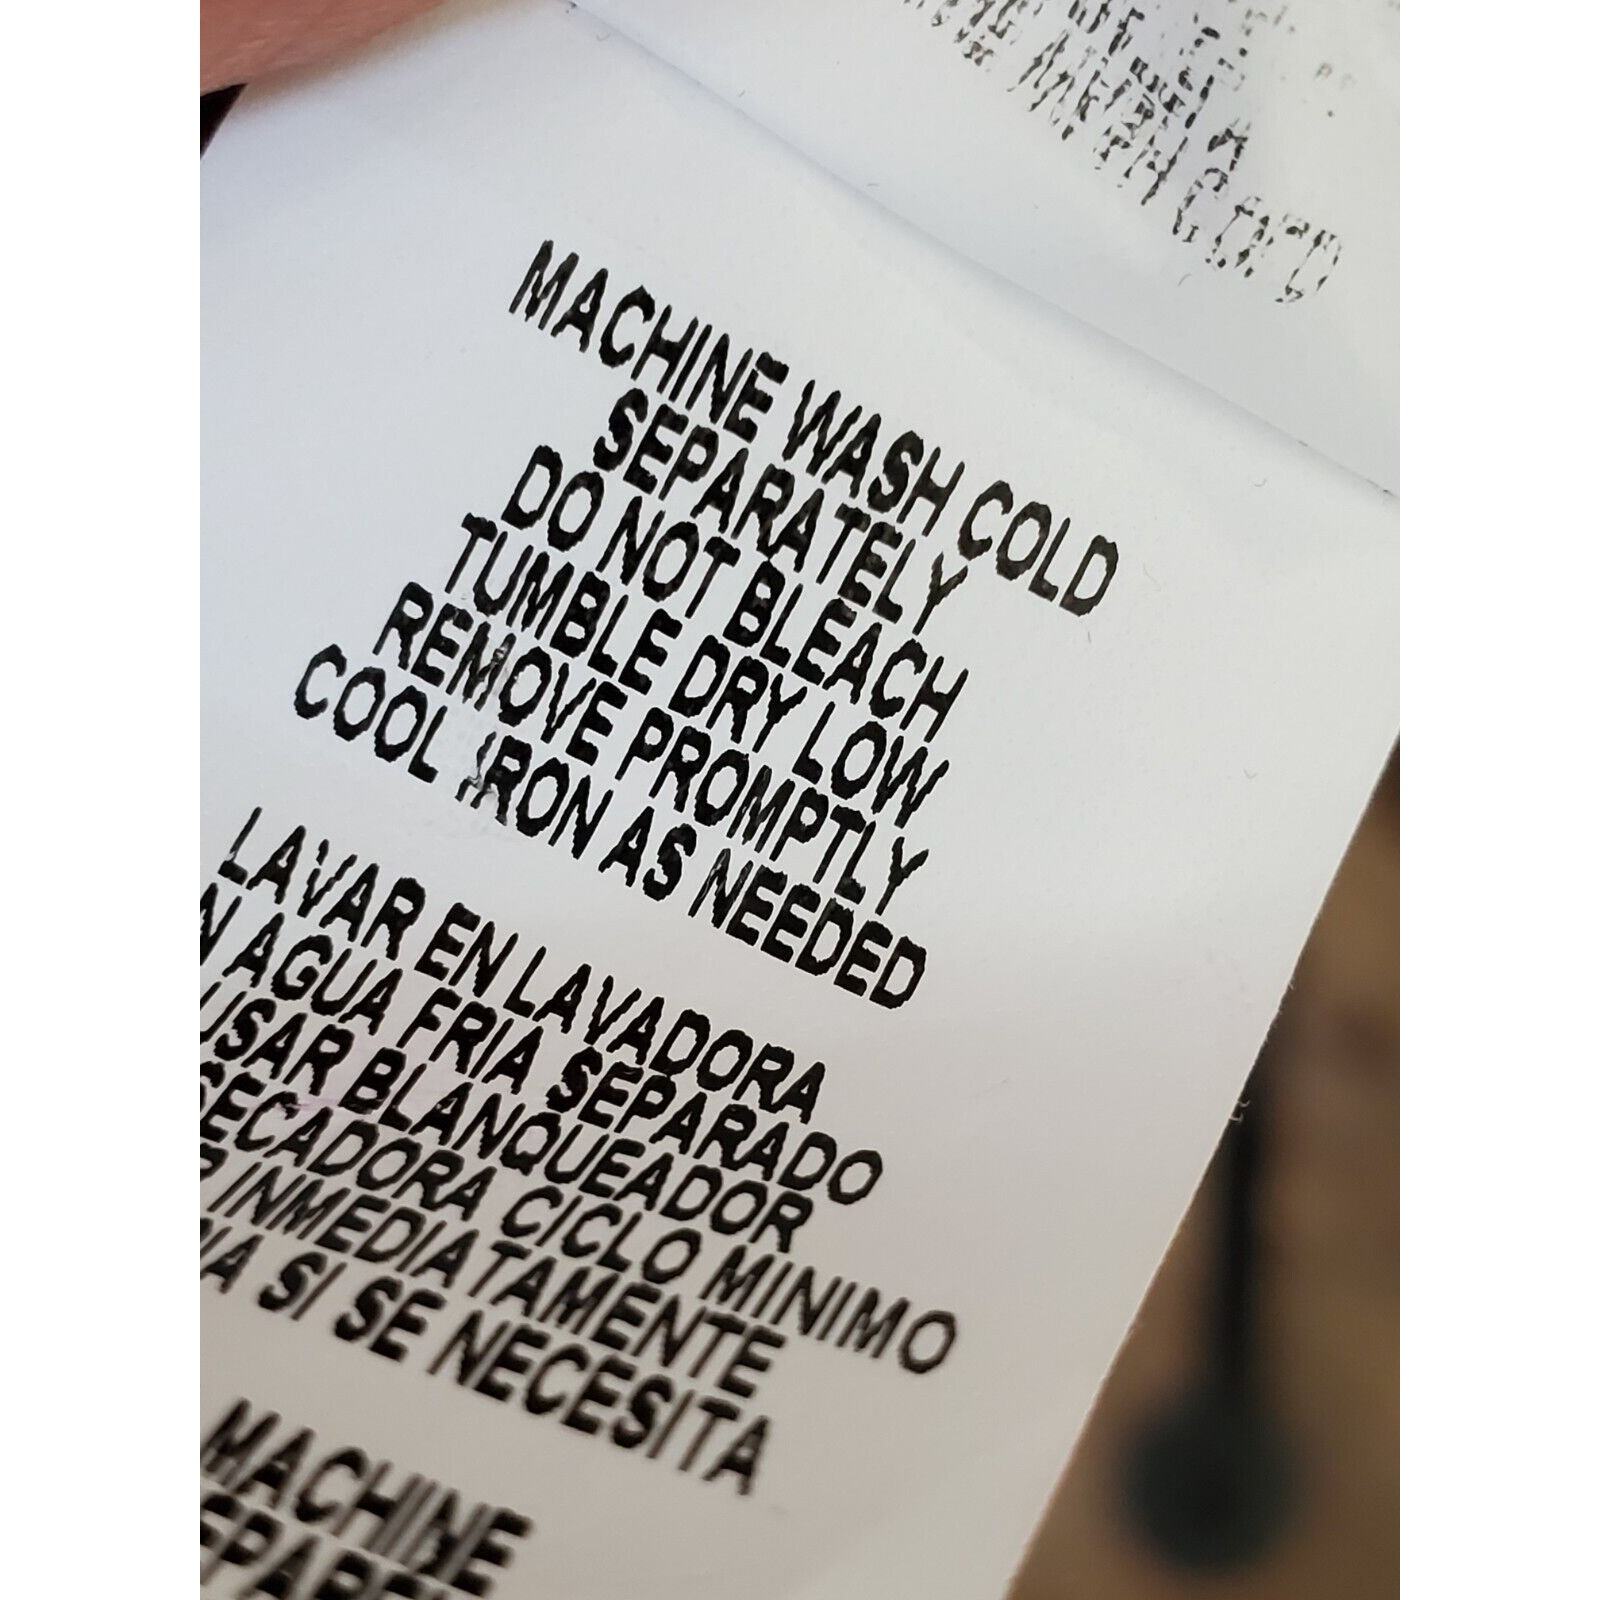 MACHINE WASH COLD
SEPARATELY
DO NOT BLEACH
TUMBLE DRY LOW
REMOVE PROMPTLY
COOL IRON AS NEEDED
LAVAR EN LAVADORA
AGUA FRIA SEPARADO
USAR BLANQUEADOR
SECADORA CICLO MINIMO
INMEDIATAMENTE
SI SE NECESITA
MACHINE